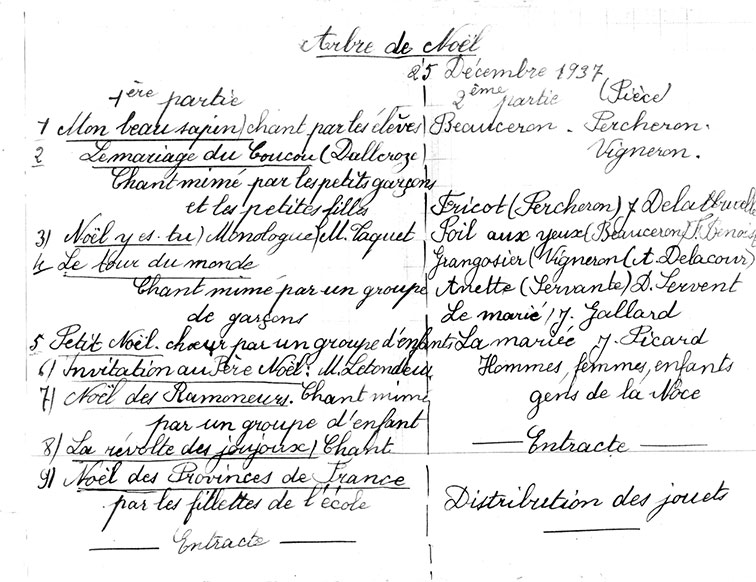 Arbre de Noël
25 Décembre 1937
1ère partie
1 Mon beau sapin) chant par les élèves
2 Le mariage du Coucou (Dallcroze)
Chant mimé par les petits garçons
et les petites filles
3) Noël y es-tu) Monologue) M. Paquet
4 Le tour du monde
Chant mimé par un groupe
de garçons
5 Petit Noël. chœur par un groupe d'enfants
6) Invitation au Père Noël. M.
7) Noël des Ramoneurs. Chant mimé
par un groupe d'enfant
8) La révolte des joujoux) Chant
9) Noël des Provinces de France
par les fillettes de l'école
Entracte
2ème partie (Pièce)
Beauceron - Percheron.
Vigneron.
Fricot (Percheron) J
Poil aux yeux (Beauceron)
Grangosier (Vigneron (A. Delacour)
Anette (Servante) D. Servent
Le marié) J. Gallard
La mariée J. Picard
Hommes, femmes, enfants
gens de la Noce
Entracte
Distribution des jouets